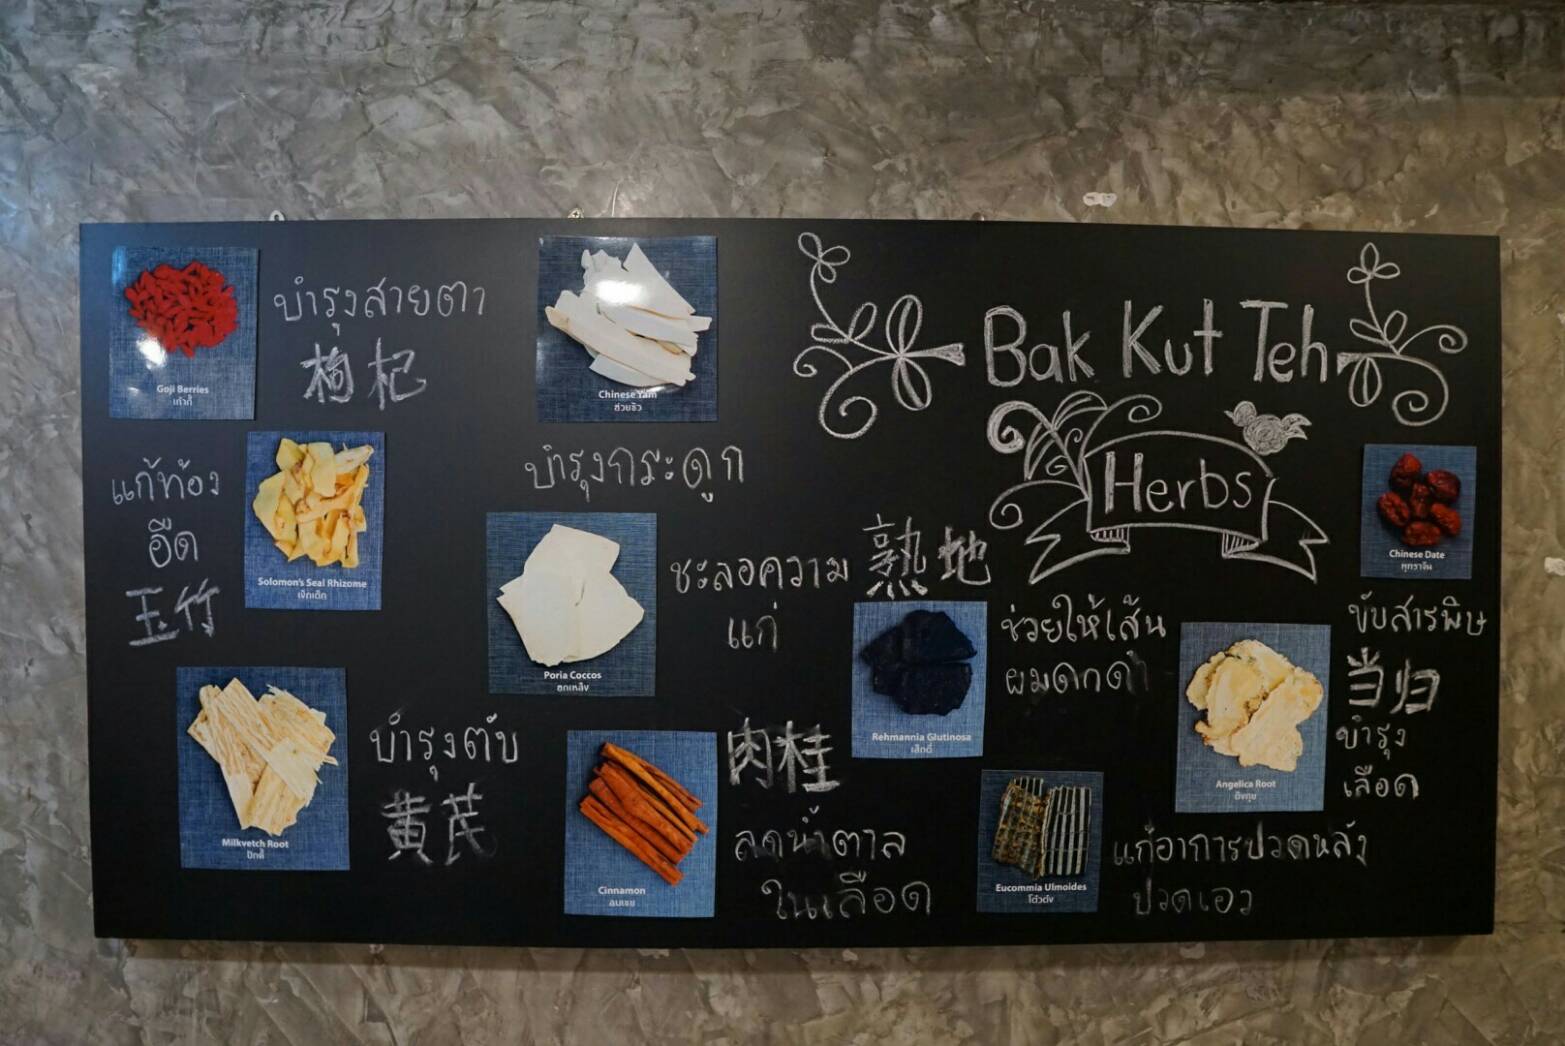 Bak Kut Teh
Herbs
Goji Berries
เก๋ากี้
บำรุงสายตา
枸杞
Chinese Yam
ฮ่วยซัว
บำรุงกระดูก
แก้ท้อง
อืด
玉竹
Solomon's Seal Rhizome
เง็กเต็ก
Poria Coccos
ฮกเหล็ง
ชะลอความ
แก่
熟地
Rehmannia Glutinosa
เส็กตี่
ช่วยให้เส้น
ผมดกดำ
Chinese Date
พุทราจีน
ขับสารพิษ
当归
บำรุง
เลือด
Angelica Root
ตังกุย
Milkvetch Root
ปักคี้
บำรุงตับ
黄芪
Cinnamon
อบเชย
肉桂
ลดน้ำตาล
ในเลือด
Eucommia Ulmoides
โต่วต๋ง
แก้อาการปวดหลัง
ปวดเอว